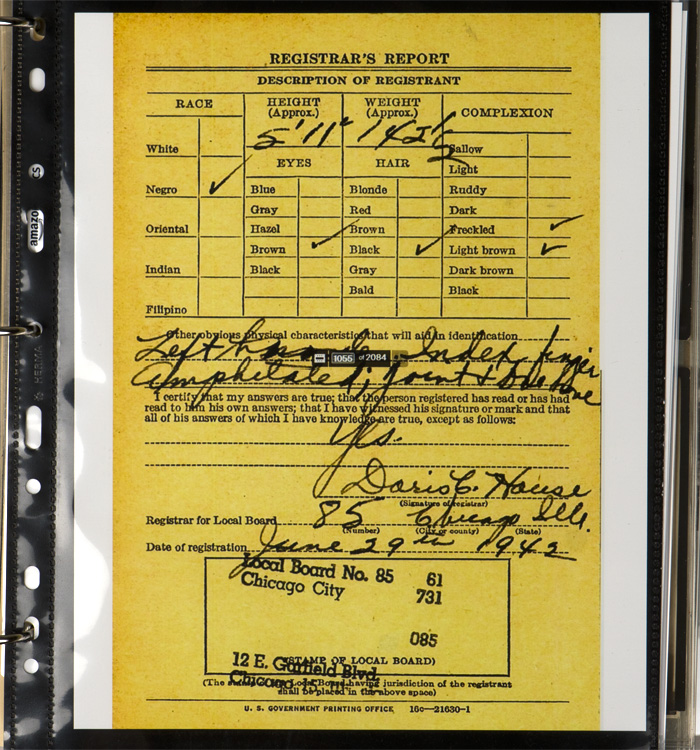 REGISTRAR'S REPORT
DESCRIPTION OF REGISTRANT
RACE
HEIGHT (Approx.)
WEIGHT (Approx.)
COMPLEXION
5'11" 142½
White
Sallow
EYES
HAIR
Light
Negro ✓
Blue
Blonde
Ruddy
Gray
Red
Dark
Oriental
Hazel
Brown
Freckled ✓
Brown ✓
Black ✓
Light brown ✓
Indian
Black
Gray
Dark brown
Bald
Black
Filipino
Other obvious physical characteristics that will aid in identification
Left hand Index finger
1055 of 2084
amphutated; joint &
I certify that my answers are true; that the person registered has read or has had
read to him his own answers; that I have witnessed his signature or mark and that
all of his answers of which I have knowledge are true, except as follows:
Yes.
Doris C. House
(Signature of registrar)
Registrar for Local Board 85 Chicago Ill.
(Number) (City or county) (State)
Date of registration June 29th 1942
Local Board No. 85 61
Chicago City 731
085
12 E. Garfield Blvd.
(STAMP OF LOCAL BOARD)
Chicago
(The stamp of the Local Board having jurisdiction of the registrant
shall be placed in the above space)
U. S. GOVERNMENT PRINTING OFFICE 16c—21630-1
amazon
HERMA